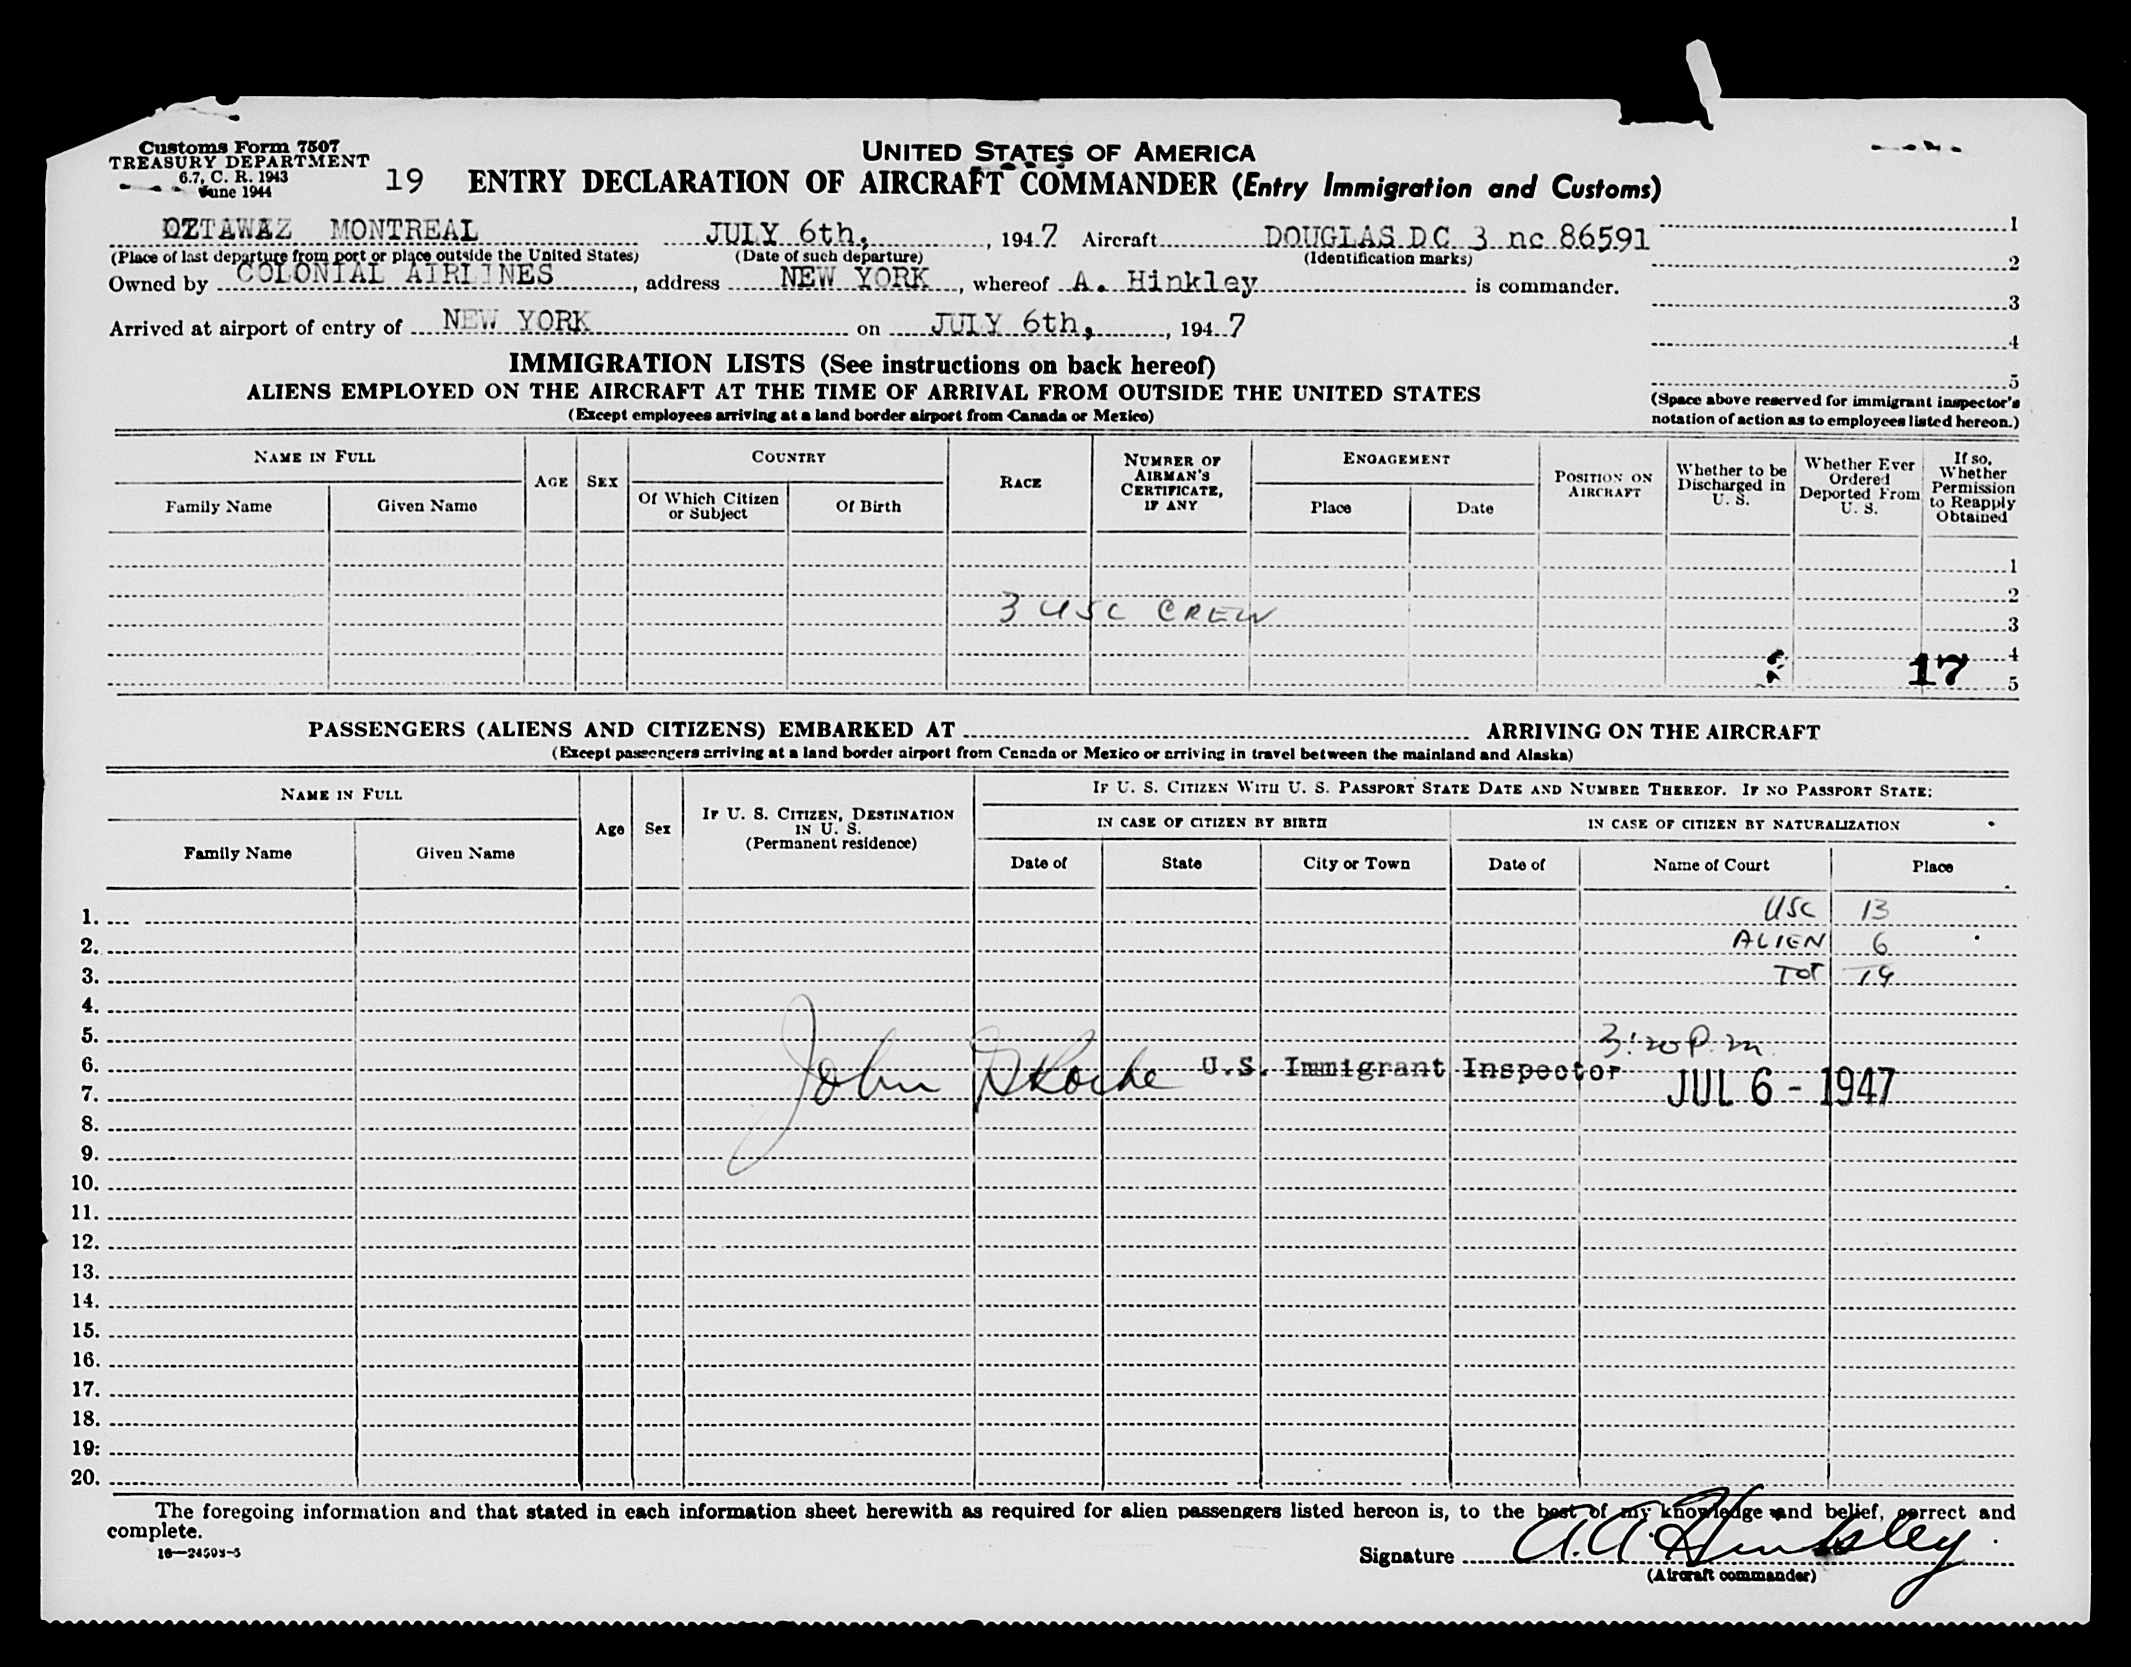 Customs Form 7507
TREASURY DEPARTMENT
6.7, C. R. 1943
June 1944
19
UNITED STATES OF AMERICA
ENTRY DECLARATION OF AIRCRAFT COMMANDER (Entry Immigration and Customs)
MONTREAL JULY 6th, , 1947 Aircraft DOUGLAS DC 3 nc 86591
(Place of last departure from port or place outside the United States) (Date of such departure) (Identification marks)
Owned by COLONIAL AIRLINES, address NEW YORK, whereof A. Hinkley is commander.
Arrived at airport of entry of NEW YORK on JULY 6th, , 1947
1
2
3
4
5
(Space above reserved for immigrant inspector's
notation of action as to employees listed hereon.)
IMMIGRATION LISTS (See instructions on back hereof)
ALIENS EMPLOYED ON THE AIRCRAFT AT THE TIME OF ARRIVAL FROM OUTSIDE THE UNITED STATES
(Except employees arriving at a land border airport from Canada or Mexico)
NAME IN FULL
Family Name
Given Name
AGE
SEX
COUNTRY
Of Which Citizen
or Subject
Of Birth
RACE
NUMBER OF
AIRMAN'S
CERTIFICATE,
IF ANY
ENGAGEMENT
Place
Date
POSITION ON
AIRCRAFT
Whether to be
Discharged in
U. S.
Whether Ever
Ordered
Deported From
U. S.
If so,
Whether
Permission
to Reapply
Obtained
1
2
3 USC CREW
3
4
17
5
PASSENGERS (ALIENS AND CITIZENS) EMBARKED AT ARRIVING ON THE AIRCRAFT
(Except passengers arriving at a land border airport from Canada or Mexico or arriving in travel between the mainland and Alaska)
NAME IN FULL
Family Name
Given Name
Age
Sex
IF U. S. CITIZEN, DESTINATION
IN U. S.
(Permanent residence)
IF U. S. CITIZEN WITH U. S. PASSPORT STATE DATE AND NUMBER THEREOF. IF NO PASSPORT STATE:
IN CASE OF CITIZEN BY BIRTH
IN CASE OF CITIZEN BY NATURALIZATION
Date of
State
City or Town
Date of
Name of Court
Place
1. USC 13
2. ALIEN 6
3. TOT 19
4.
5. 3:20 P.m.
6. John Roche U.S. Immigrant Inspector
7. JUL 6 - 1947
8.
9.
10.
11.
12.
13.
14.
15.
16.
17.
18.
19:
20.
The foregoing information and that stated in each information sheet herewith as required for alien passengers listed hereon is, to the best of my knowledge and belief, correct and
complete.
Signature A.A. Hinkley
(Aircraft commander)